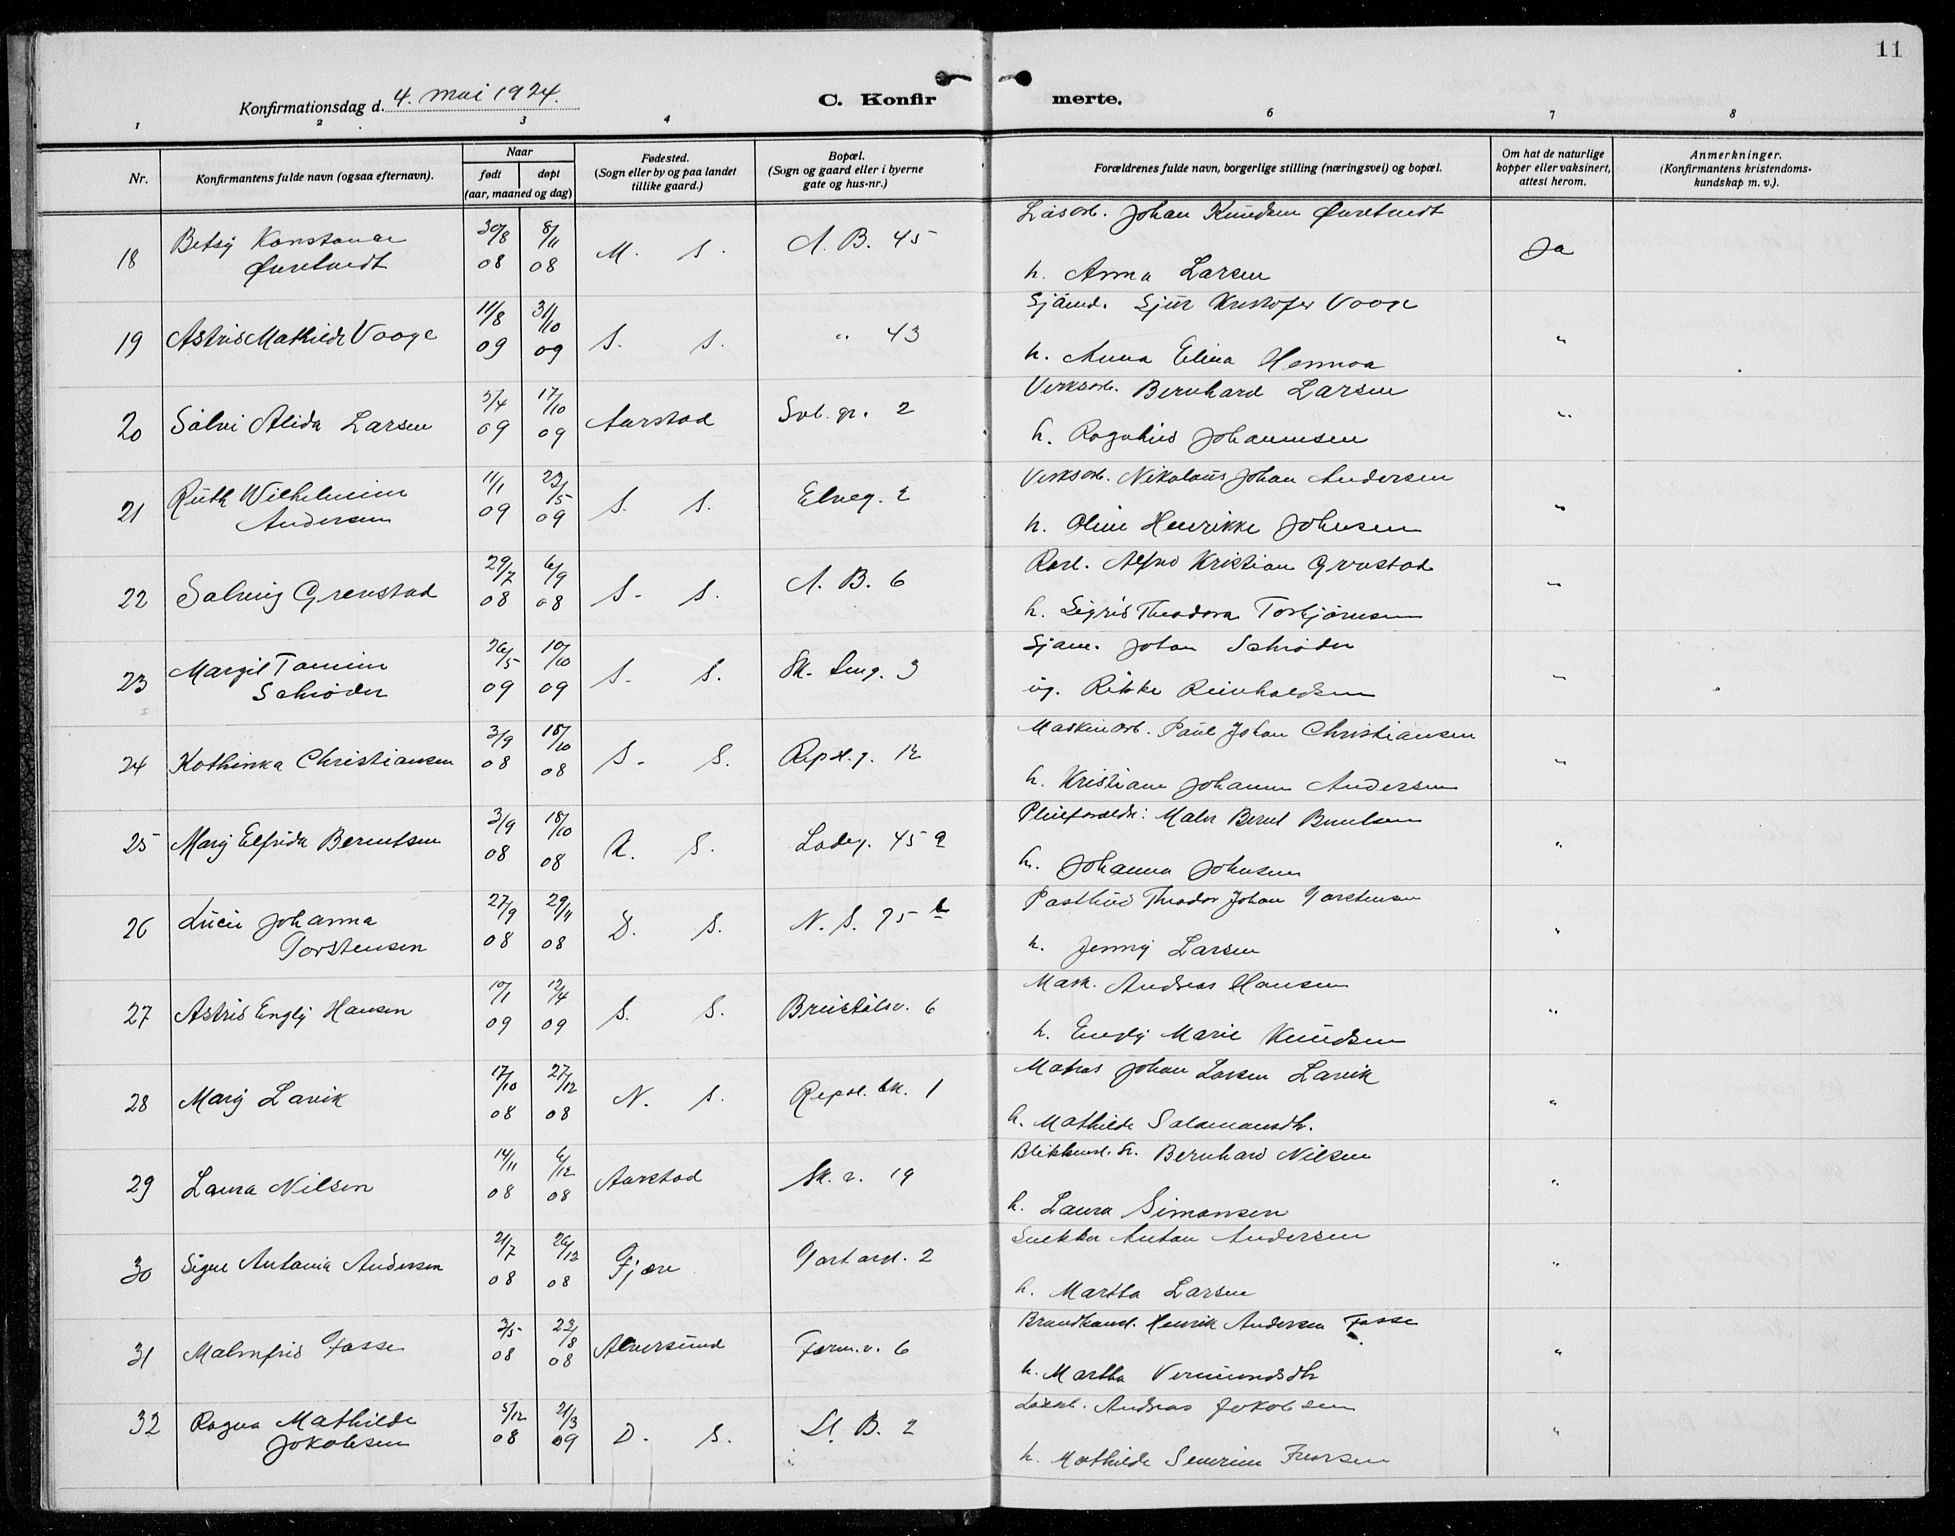 11
Konfirmationsdag d. 4. mai 1924.
C. Konfir merte.
1 2 3 4 6 7 8
Nr.
Konfirmantens fulde navn (ogsaa efternavn).
Naar
født døpt
(aar, maaned og dag)
Fødested.
(Sogn eller by og paa landet
tillike gaard.)
Bopæl.
(Sogn og gaard eller i byerne
gate og hus-nr.)
Forældrenes fulde navn, borgerlige stilling (næringsvei) og bopæl.
Om hat de naturlige
kopper eller vaksinert,
attest herom.
Anmerkninger.
(Konfirmantens kristendoms-
kundskap m. v.).
Løsarb. Johan Knudsen Øvretvedt
18 Betsy Konstance 30/8 8/11 M. S. A. B. 45 Ja
Øvretvedt 08 08
h. Anna Larsen
Sjømd. Sjur Kristofer Vaage
19 Astrid Mathilde Vaage 11/8 09 31/10 09 S. S. " 43 "
h. Anna Elina Hennoa
Verksarb. Bernhard Larsen
20 Solvi Alida Larsen 5/4 09 17/10 09 Aarstad 2 "
h. Ragnhild Johannesen
Verksarb. Nikolaus Johan Andersen
21 Ruth Wilhelmine 11/1 23/5 S. S. Elveg. 2 "
Andersen 09 09
h. Oline Henrikke Johnsen
Alfred Kristian Grenstad
22 Solveig Grenstad 29/7 08 6/9 08 S. S. A. B. 6 "
h. Sigrid Theodora Torbjørnsen
Sjøm. Johan Schrøder
23 Margit Tomine 26/5 10/10 S. S. Sk. Smg. 3 "
Schrøder 09 09
ug. Rikke Reinholdsen
Maskinarb. Paul Johan Christiansen
24 Kathinka Christiansen 3/9 08 18/10 08 S. S. Repsl.g. 12 "
h. Kristiane Johanne Andersen
Pleieforældr: Maler Bernt Berntsen
25 Mary Elfrida Berntsen 3/9 08 18/10 08 S. Ladeg. 45 a "
h. Johanna Johnsen
Postbud Theodor Johan Torstensen
26 Lucie Johanna 27/9 29/11 D. S. N. S. 75 b "
Torstensen 08 08
h. Jenny Larsen
Mask. Andreas Hansen
27 Astrid Engly Hansen 10/1 09 12/4 09 S. S. Breistølsv. 6 "
h. Emely Marie Knudsen
Matros Johan Larsen Lavik
28 Mary Lavik 17/10 08 27/12 08 N. S. Repsl. bk. 1 "
h. Mathilde Salamonsdtr.
Bernhard Nilsen
29 Laura Nilsen 14/11 08 6/12 08 Aarstad Sk. v. 19 "
h. Laura Simonsen
Snekker Anton Andersen
30 Signe Antonia Andersen 21/7 08 26/12 08 Fjære 2 "
h. Martha Larsen
Brandkonst. Henrik Andersen Fosse
31 Malmfrid Fosse 3/5 08 23/8 08 Alversund Form.v. 6 "
h. Martha Vermundsdtr
Løsarb. Andreas Jakobsen
32 Ragna Mathilde 5/12 21/3 D. S. St. B. 2 "
Jakobsen 08 09
h. Mathilde Severine Iversen